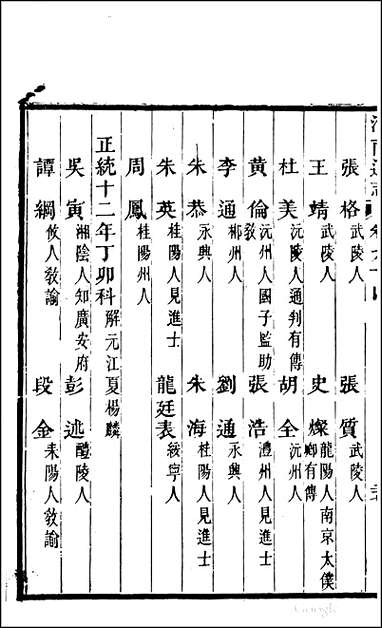 張格 武陵人 張質 武陵人
王靖 武陵人 史燦 龍陽人南京太僕卿有傳
杜美 沅陵人通判有傳 胡全 沅州人
黃倫 沅州人國子監助敎 張浩 澧州人見進士
李通 郴州人 劉通 永興人
朱恭 永興人 朱海 桂陽人見進士
朱英 桂陽人見進士 龍廷表 綏寧人
周鳳 桂陽州人
正統十二年丁卯科 解元江夏楊麟
吳寅 湘陰人知廣安府 彭述 醴陵人
譚綱 攸人敎諭 段金 耒陽人敎諭